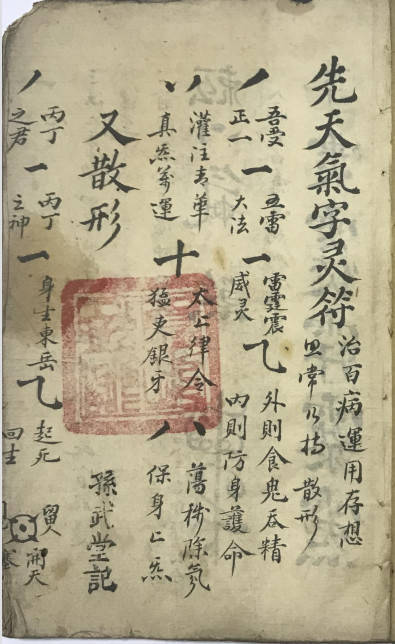 先天氣字灵符
治百病運用存想
照常行持 散形
丿 吾受正一 一 五雷大法 一 雷霆震威灵 乙 外則食鬼吞精 内則防身護命
丷 灌注青華真炁萬運 十 太上律令猛吏銀牙 八 蕩穢除氛保身上炁
又散形
孫武堂記
丿 丙丁之君 一 丙丁之神 一 身生東岳 乙 起死回生
開天